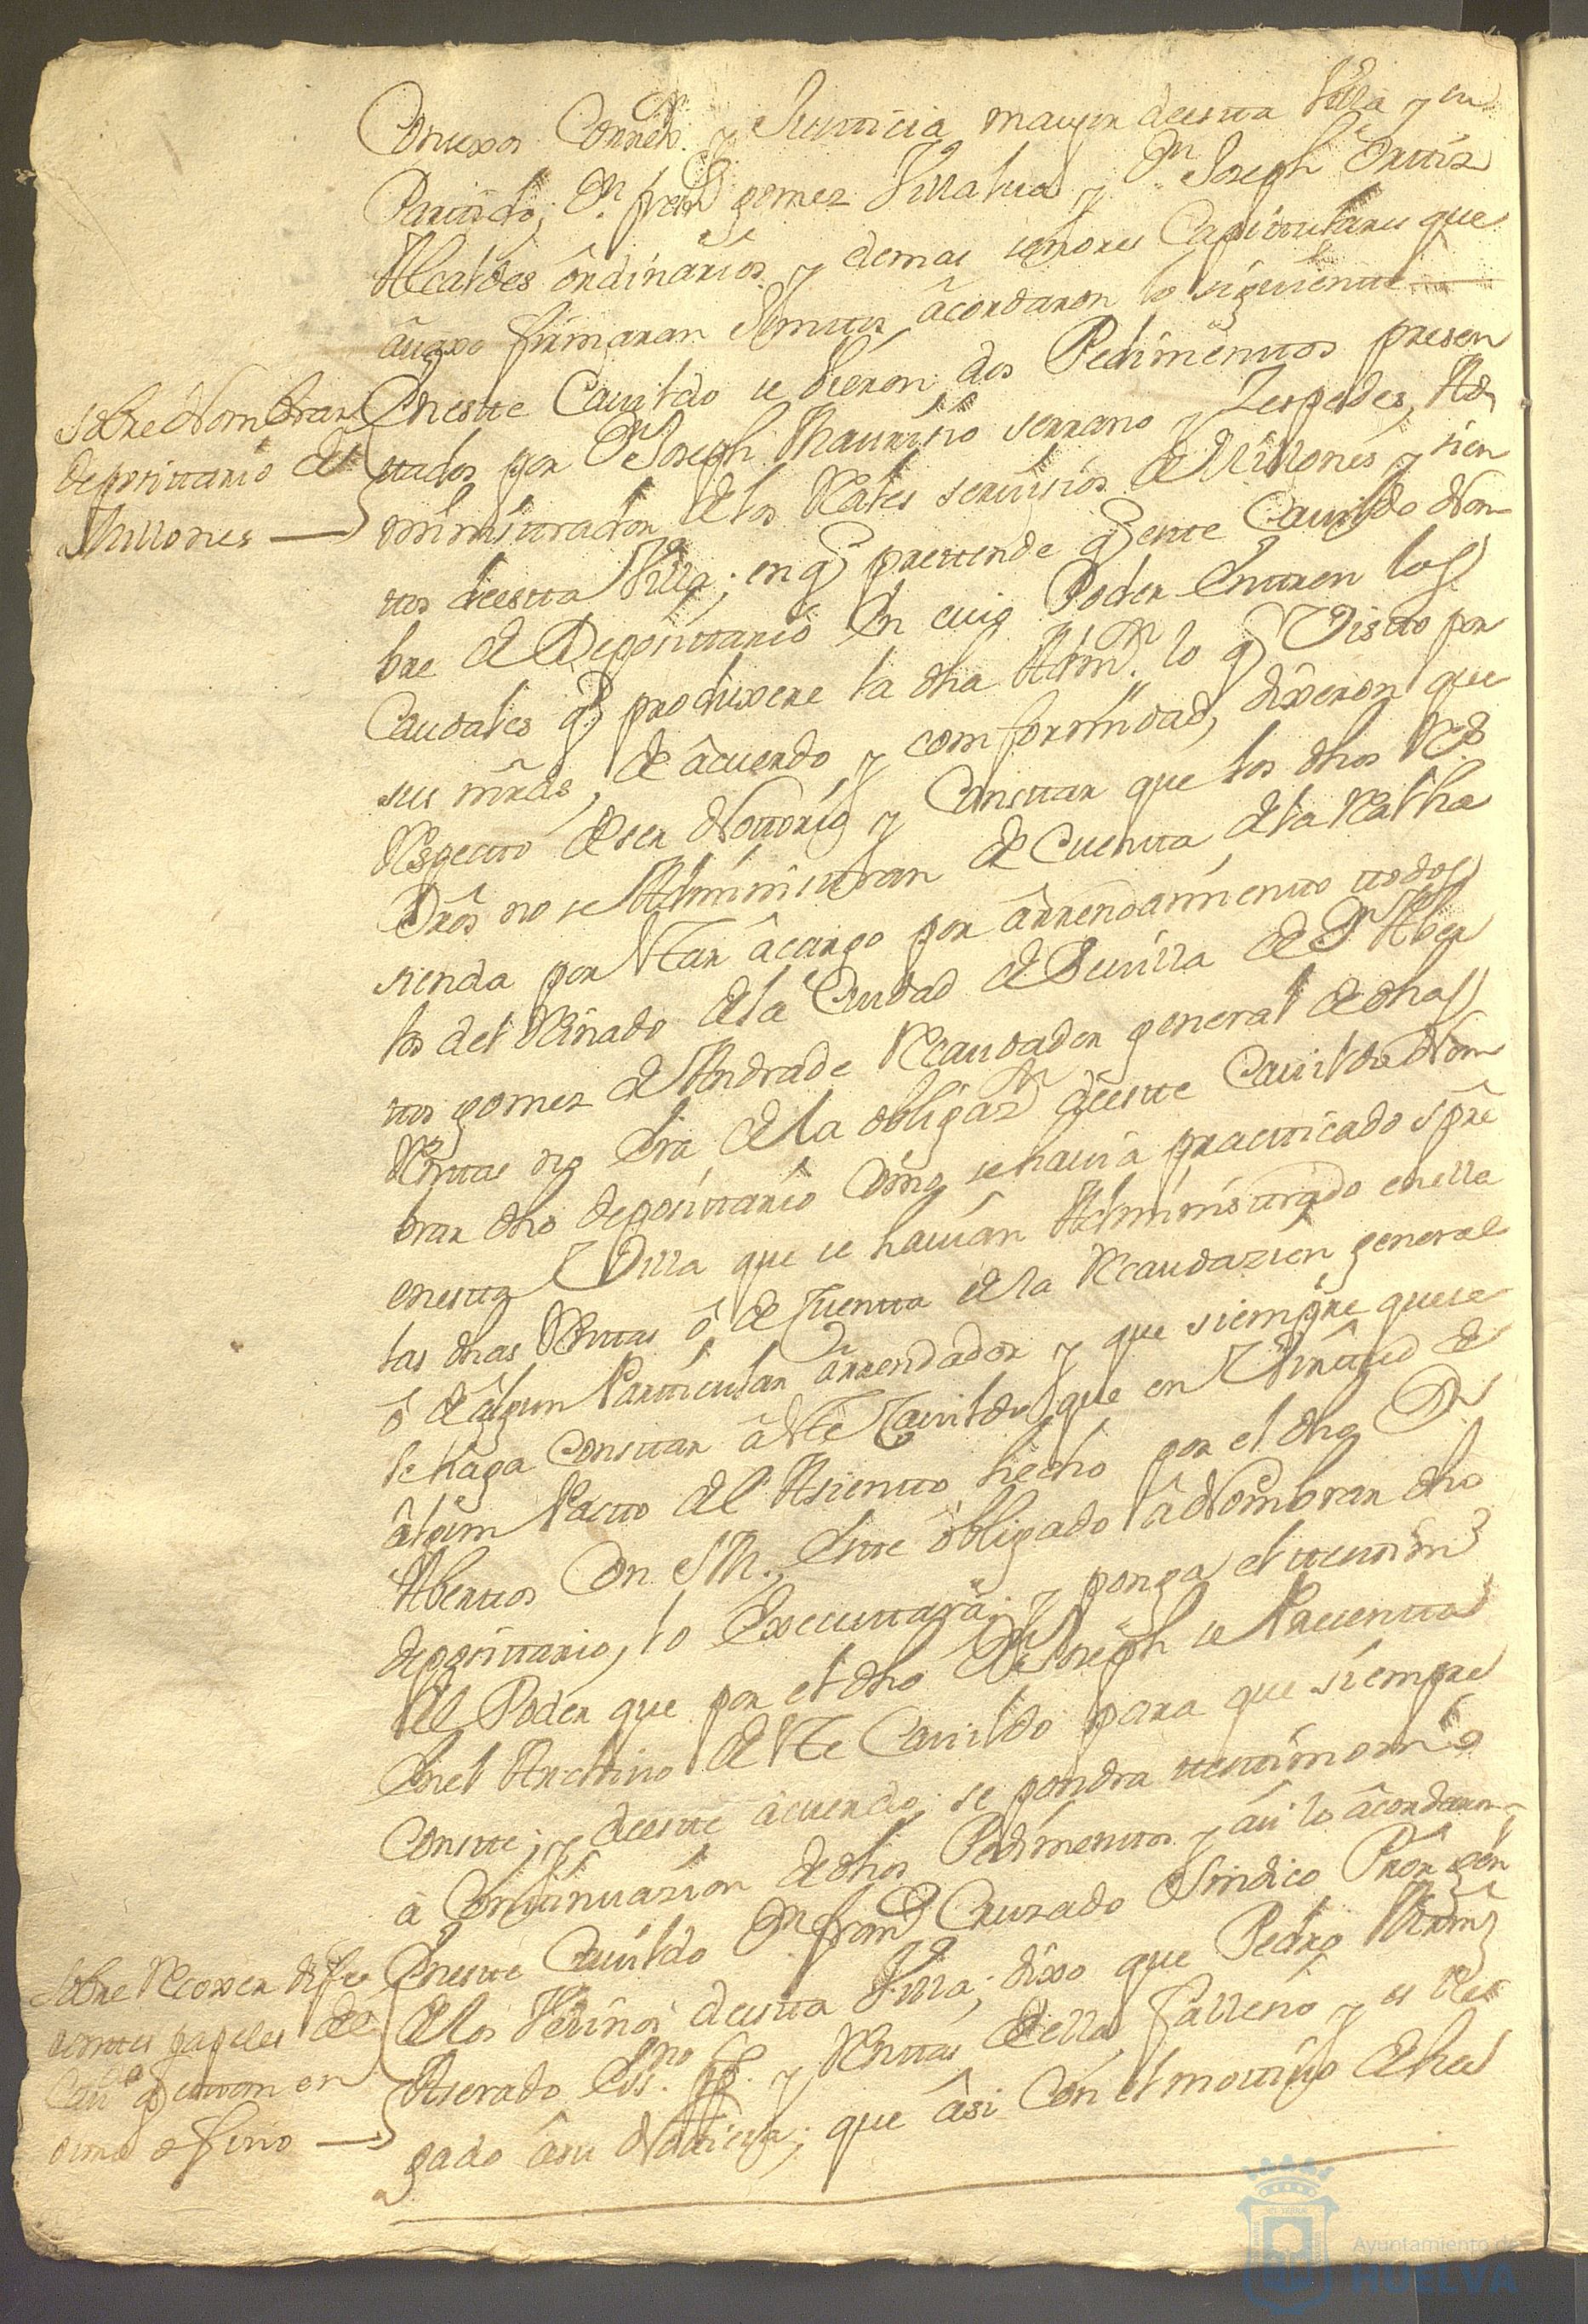 Consexos Correxor. y Justticia mayor deestta Villa y su
Parttido; Dn. franco. gomez Villalua y Dn. Joseph Orttiz
Alcaldes ôrdinarios y demas señores Capittulares que
âuaxo firmaran Junttos âcordaron lo siguientte
sobre Nombrar
deposittario de
Millones
Eneste Cauildo se vieron dos Pedimenttos presen
ttados por Dn. Joseph Maurisio serrano y Zespedes, Ad
ministtrador de los Reales seruisios de Millones y sien
ttos deestta Villa; en q. prettende q. estte Cauildo Nom
bre de Deposittario en cuio Poder Enttren los
Caudales q. produxere la dha Admn. lo q. Vistto por
sus mrds, de âcuerdo y comformidad, dixeron que
Respectto de ser Nottorio y Consttar que los dhos Rs.
Dros no se Administtran de Cuentta de la Real ha
sienda por esttar âcargo por ârrendamientto ttodos
los del Reinado de la Ciudad de Seuilla de Dn. Alber
tto gomez de Andrade Recaudador general de dhas
Renttas no Era de la obligazn. deestte Cauildo Nom
brar dho deposittario Como se hauia practticado spre
enestta Villa que se hauian Administtrado enella
las dhas Renttas ô de Cuentta de la Recaudazion general
ô de âlgun Partticular ârrendador y que siempre que se
le haga Consttar â estte Cauildo que en Virttud de
âlgun Pactto del Asientto hecho por el dho Dn.
Alberttos Con S.M., Estte ôbligado â Nombrar dho
deposittario, lo Executtará; y ponga el testtimo
del Poder que por el dho Dn. Joseph se Presentta
en el Archiuo de estte Cauildo para que siempre
Constte; y deestte âcuerdo; se pondra testtimonio
a Conttinuazion de dhos Pedimenttos y âsi lo âcordaron
sobre Recoxer dife
renttes papeles del
Cauo. q. estauan en
ofisio
Enestte Cauildo Dn. franco. Cruzado Sindico Pror. gen
de los Vezinos deestta Villa; dixo que Pedro
Aserado Essno. pp. y Renttas de ella fallesio y es lle
gado âsu Notticia; que âsi Con el mottiuo de ha
Ayuntamiento de
HUELVA